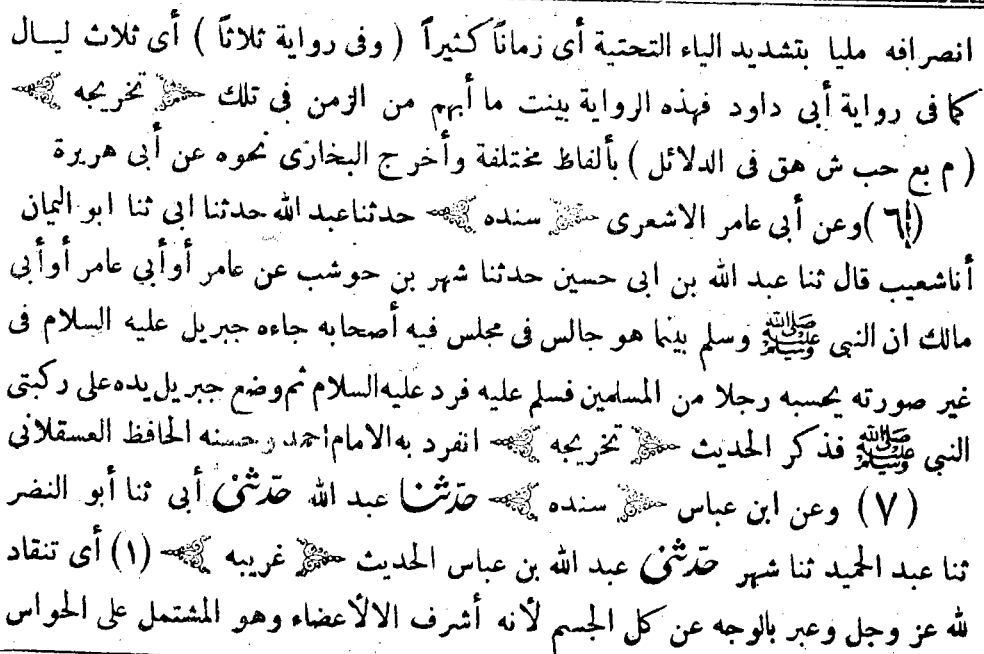 انصرافه مليا بتشديد الياء التحتية أى زماناً كثيراً ( وفى رواية ثلاثاً ) أى ثلاث ليال
كما فى رواية أبى داود فهذه الرواية بينت ما أبهم من الزمن فى تلك تخريجه
( م بع حب ش هق فى الدلائل ) بألفاظ مختلفة وأخرج البخارى نحوه عن أبى هريرة
(٦) وعن أبى عامر الاشعرى سنده حدثنا عبد الله حدثنا ابى ثنا ابو اليمان
أنا شعيب قال ثنا عبد الله بن ابى حسين حدثنا شهر بن حوشب عن عامر أو أبي عامر أو أبى
مالك ان النبى ﷺ وسلم بينما هو جالس فى مجلس فيه أصحابه جاءه جبريل عليه السلام فى
غير صورته يحسبه رجلا من المسلمين فسلم عليه فرد عليه السلام ثم وضع جبريل يده على ركبتى
النبى ﷺ فذكر الحديث تخريجه انفرد به الامام احمد وحسنه الحافظ العسقلانى
(٧) وعن ابن عباس سنده حدثنا عبد الله حدثنى أبى ثنا أبو النضر
ثنا عبد الحميد ثنا شهر حدثنى عبد الله بن عباس الحديث غريبه (١) أى تنقاد
لله عز وجل وعبر بالوجه عن كل الجسم لأنه أشرف الالأعضاء وهو المشتمل على الحواس